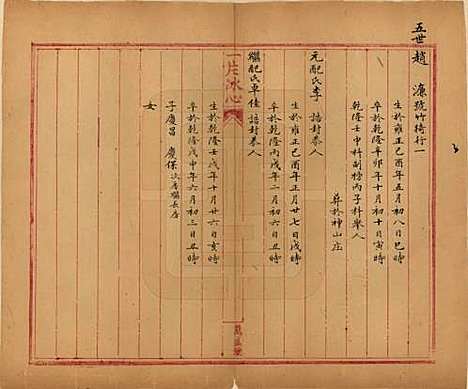 五世趙 濂號竹椅行一
生於雍正己酉年五月初八日巳時
卒於乾隆辛卯年十月初十日寅時
乾隆壬申科副榜丙子科舉人
葬於神山庄
元配氏李 誥封恭人
生於雍正己酉年正月廿七日戌時
卒於乾隆丙戌年二月初六日丑時
一片冰心
繼配氏車佳 誥封恭人
生於乾隆壬戌年十月廿六日亥時
卒於乾隆戊申年六月初三日丑時
子慶昌 慶保次房嗣長房
女